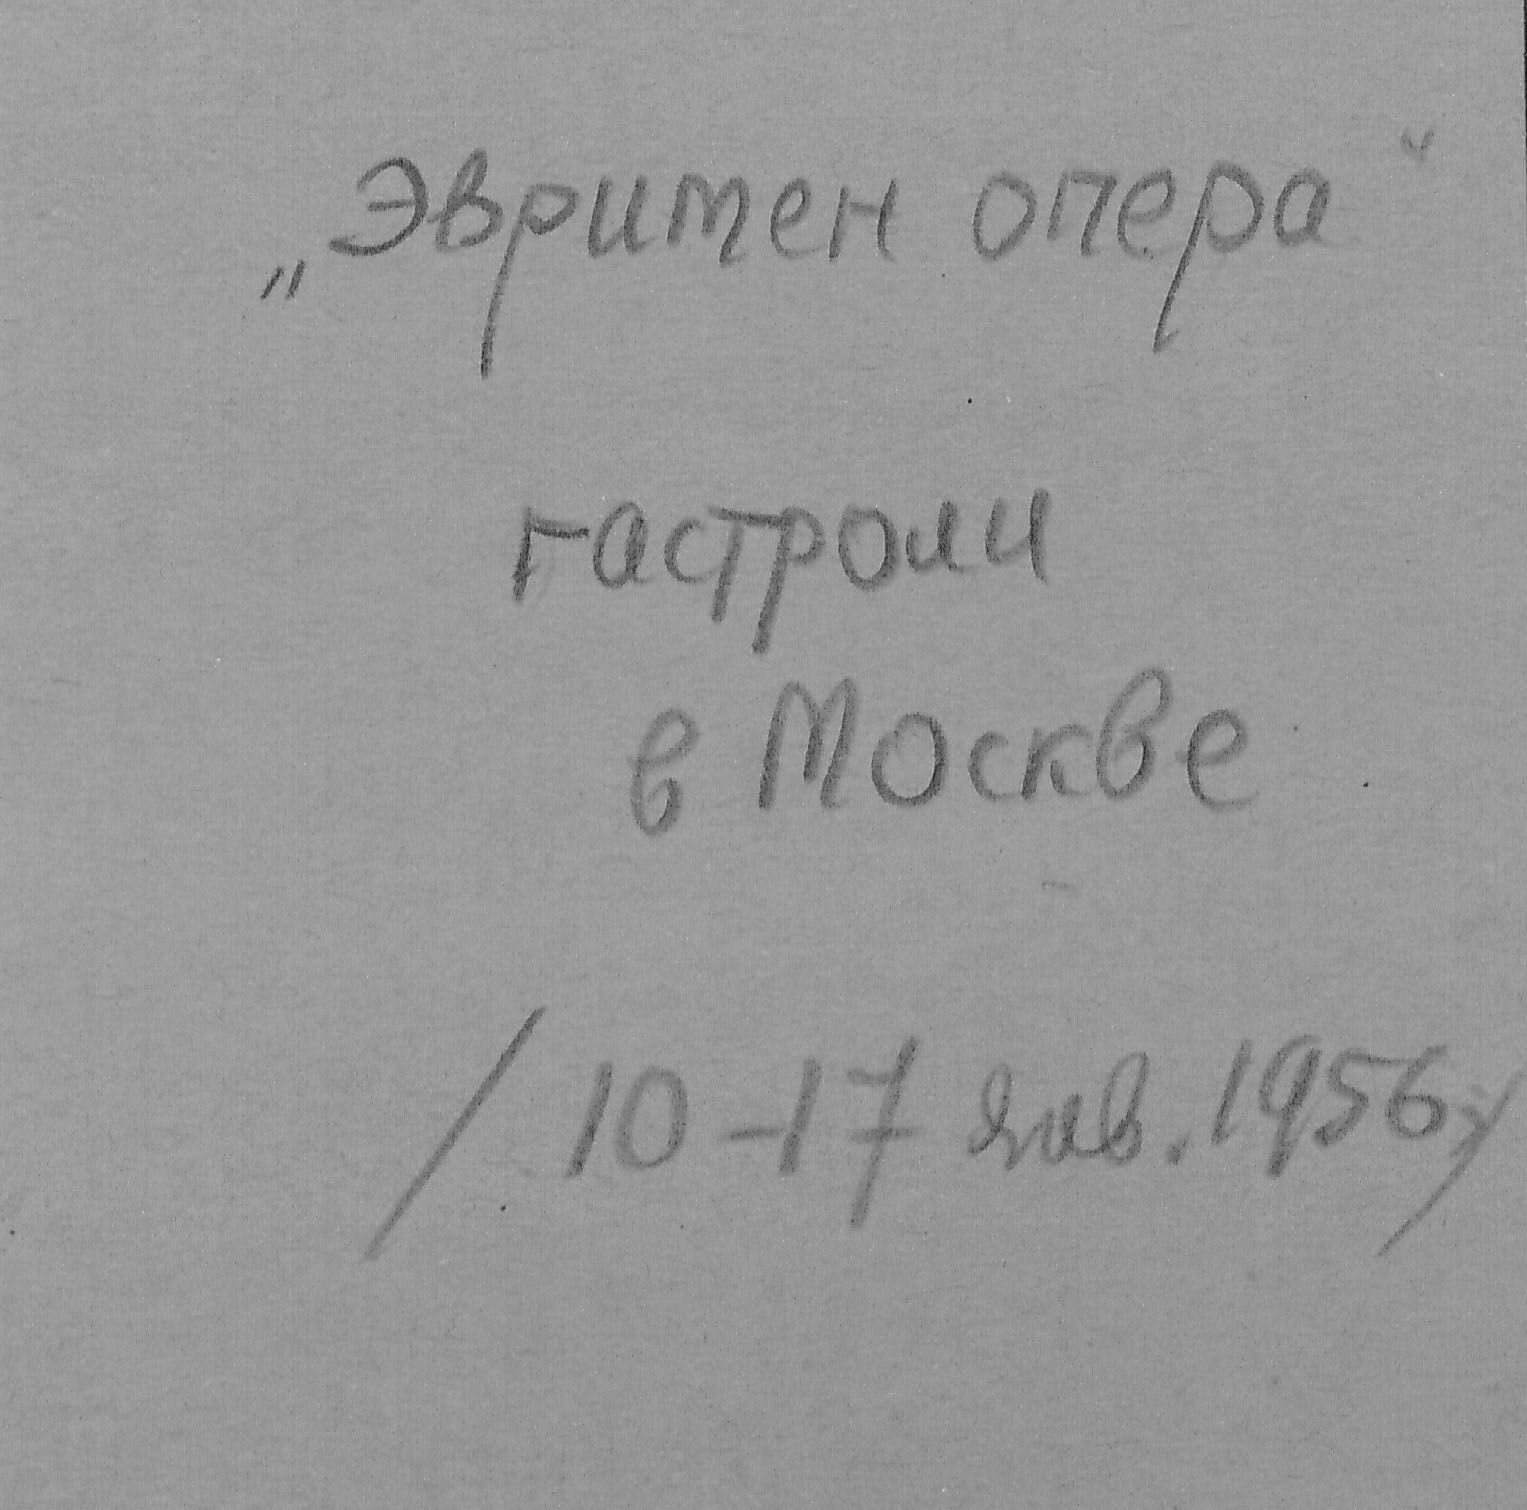 „Эвримен опера“
гастроли
в Москве
/10-17 янв. 1956г/